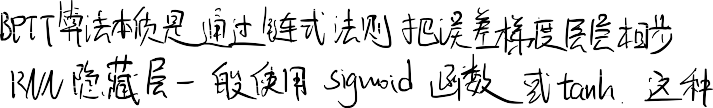 BPTT算法本质是通过链式法则把误差梯度层层相步
RNN隐藏层一般使用sigmoid函数或tanh.这种